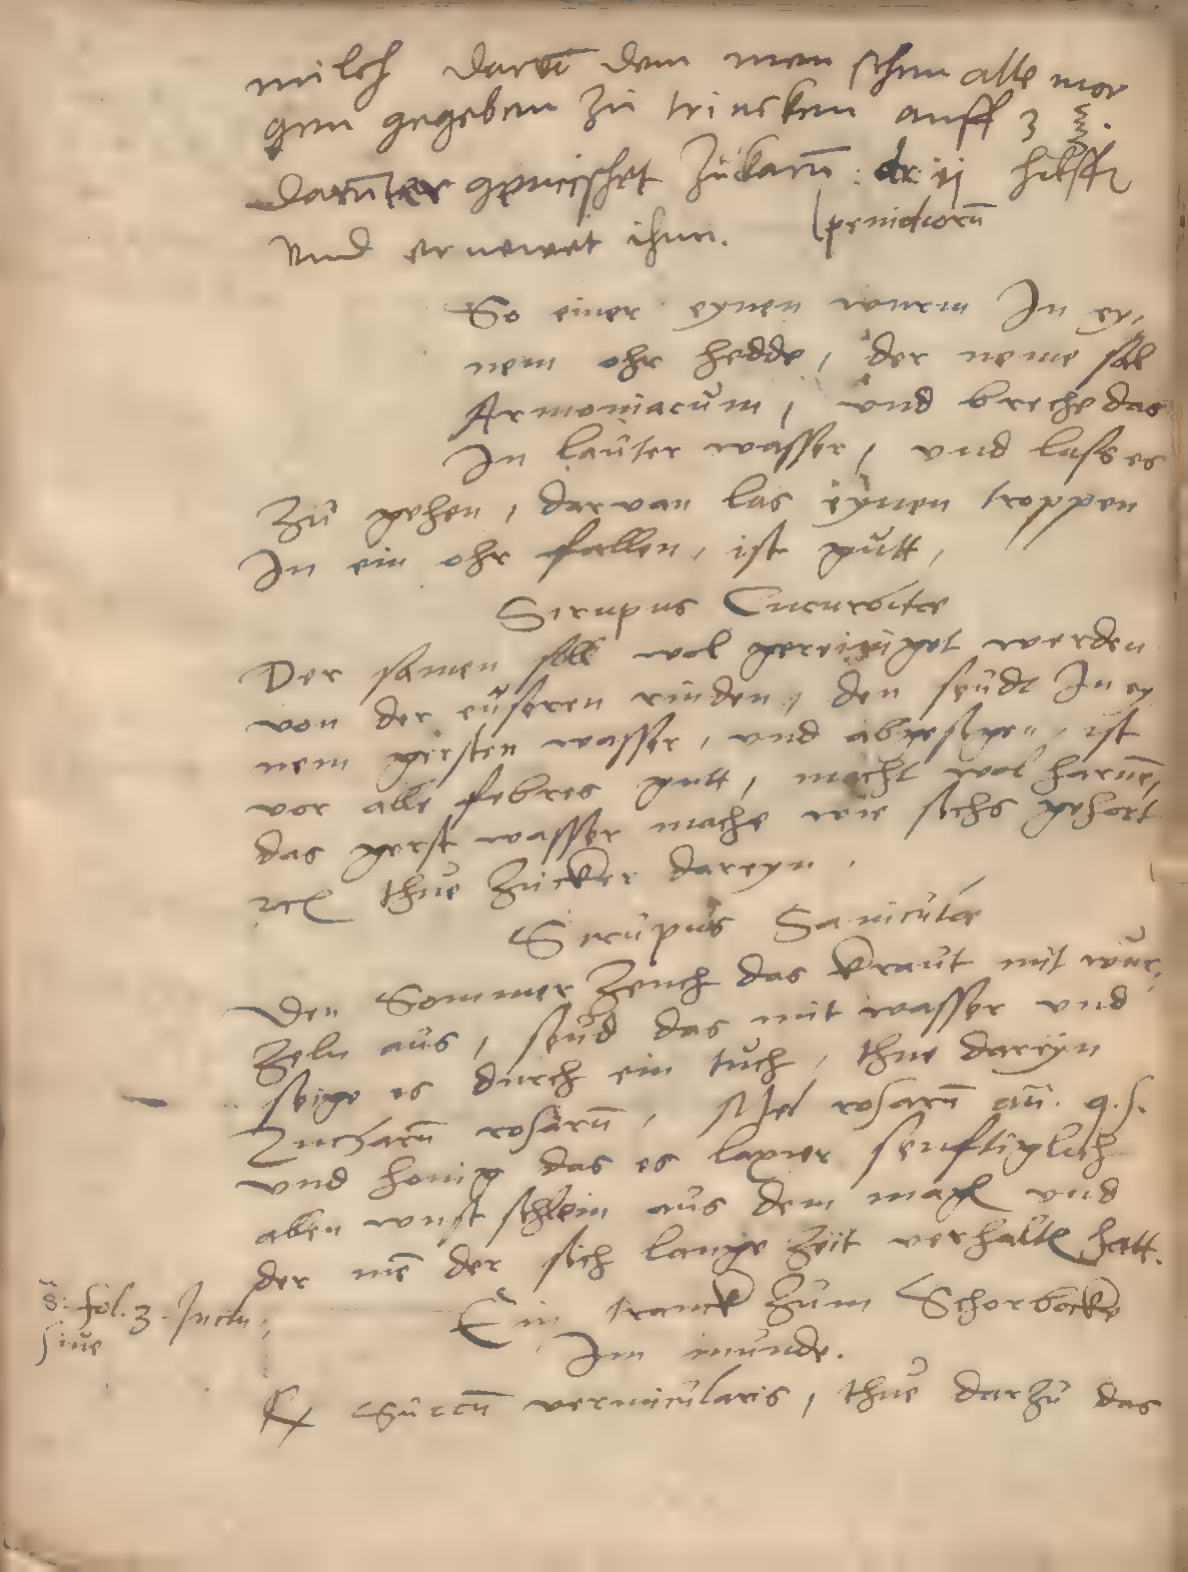 milch darvō dem menschen alle mor
gen gegeben zu trincken auff 3 ℥.
darūter gemischet Zuckarū : dr. ij hilfft
und ernewet ihnn. penidiorū
So einer eynen wurm In ey,
nem ohr hedde, der neme sal
Armoniacum, und breche das
In lauter wasser, und lass es
Zu gehen, darvan las eynen troppen
In ein ohr fallen, ist gutt,
Sirupus Cucurbitæ
Der samen soll wol gereiniget werden
von der euseren rinden, den seudt In ey
nem gersten wasser, und abgesigen, ist
vor alle febres gutt, macht wol harnē,
das gerst wasser mache wie sichs gehort
thue Zucker dareyn.
Sirupus Saniculæ
Den Sommer Zeuch das kraut mit wur,
Zeln aus, seud das mit wasser und
seige es durch ein tuch, thue dareyn
Zucharū rosarū, Mel rosarū añ. q.s.
und honig das es laxier senftiglich
allen wust schleim aus dem magē und
der mē der sich lange Zeit verhaltē hatt.
ð. fol. 3. Inclu,
sive
Ein tranck Zum Schorbocke
Im munde.
℞ Succū vermicularis, thue darzu das